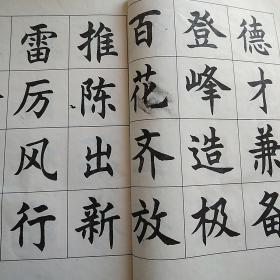 德才兼备
登峰造极
百花齐放
推陈出新
雷厉风行